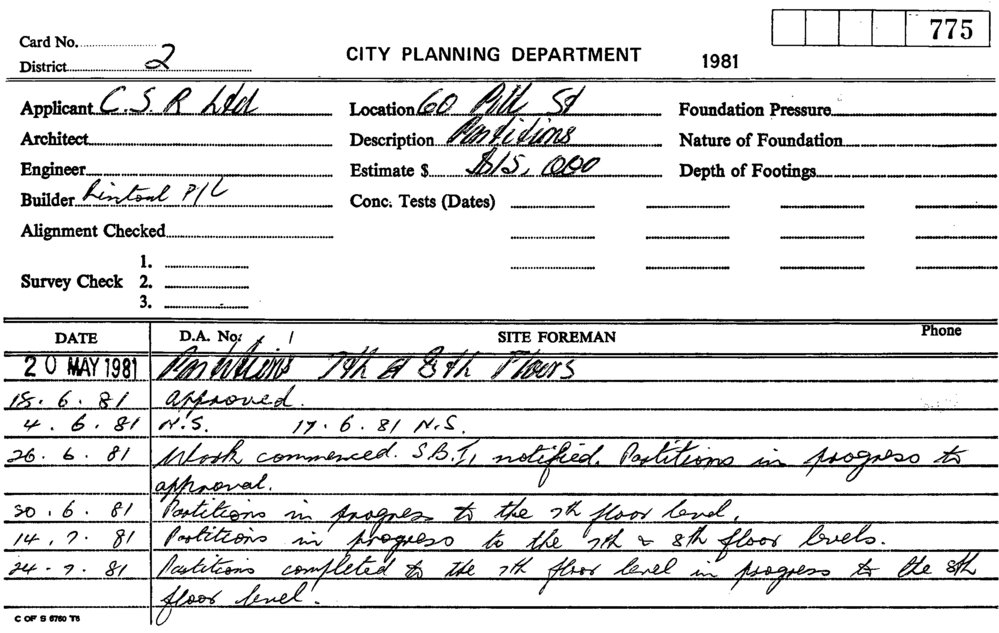 775
Card No.
District 2
CITY PLANNING DEPARTMENT 1981
Applicant C.S.R Ltd Location 60 Pitt St Foundation Pressure
Architect Description Partitions Nature of Foundation
Engineer Estimate $ $15,000 Depth of Footings
Builder P/L Conc. Tests (Dates)
Alignment Checked
1.
Survey Check 2.
3.
DATE D.A. No: SITE FOREMAN Phone
20 MAY 1981 Partitions 7th & 8th Floors
18.6.81 approved.
4.6.81 N.S. 17.6.81 N.S.
26.6.81 Work commenced. S.B.I, notified. Partitions in progress to
approval.
30.6.81 Partitions in progress to the 7th floor level.
14.7.81 Partitions in progress to the 7th & 8th floor levels.
24.7.81 Partitions completed to the 7th floor level in progress to the 8th
floor level.
C OF S 6760 T6